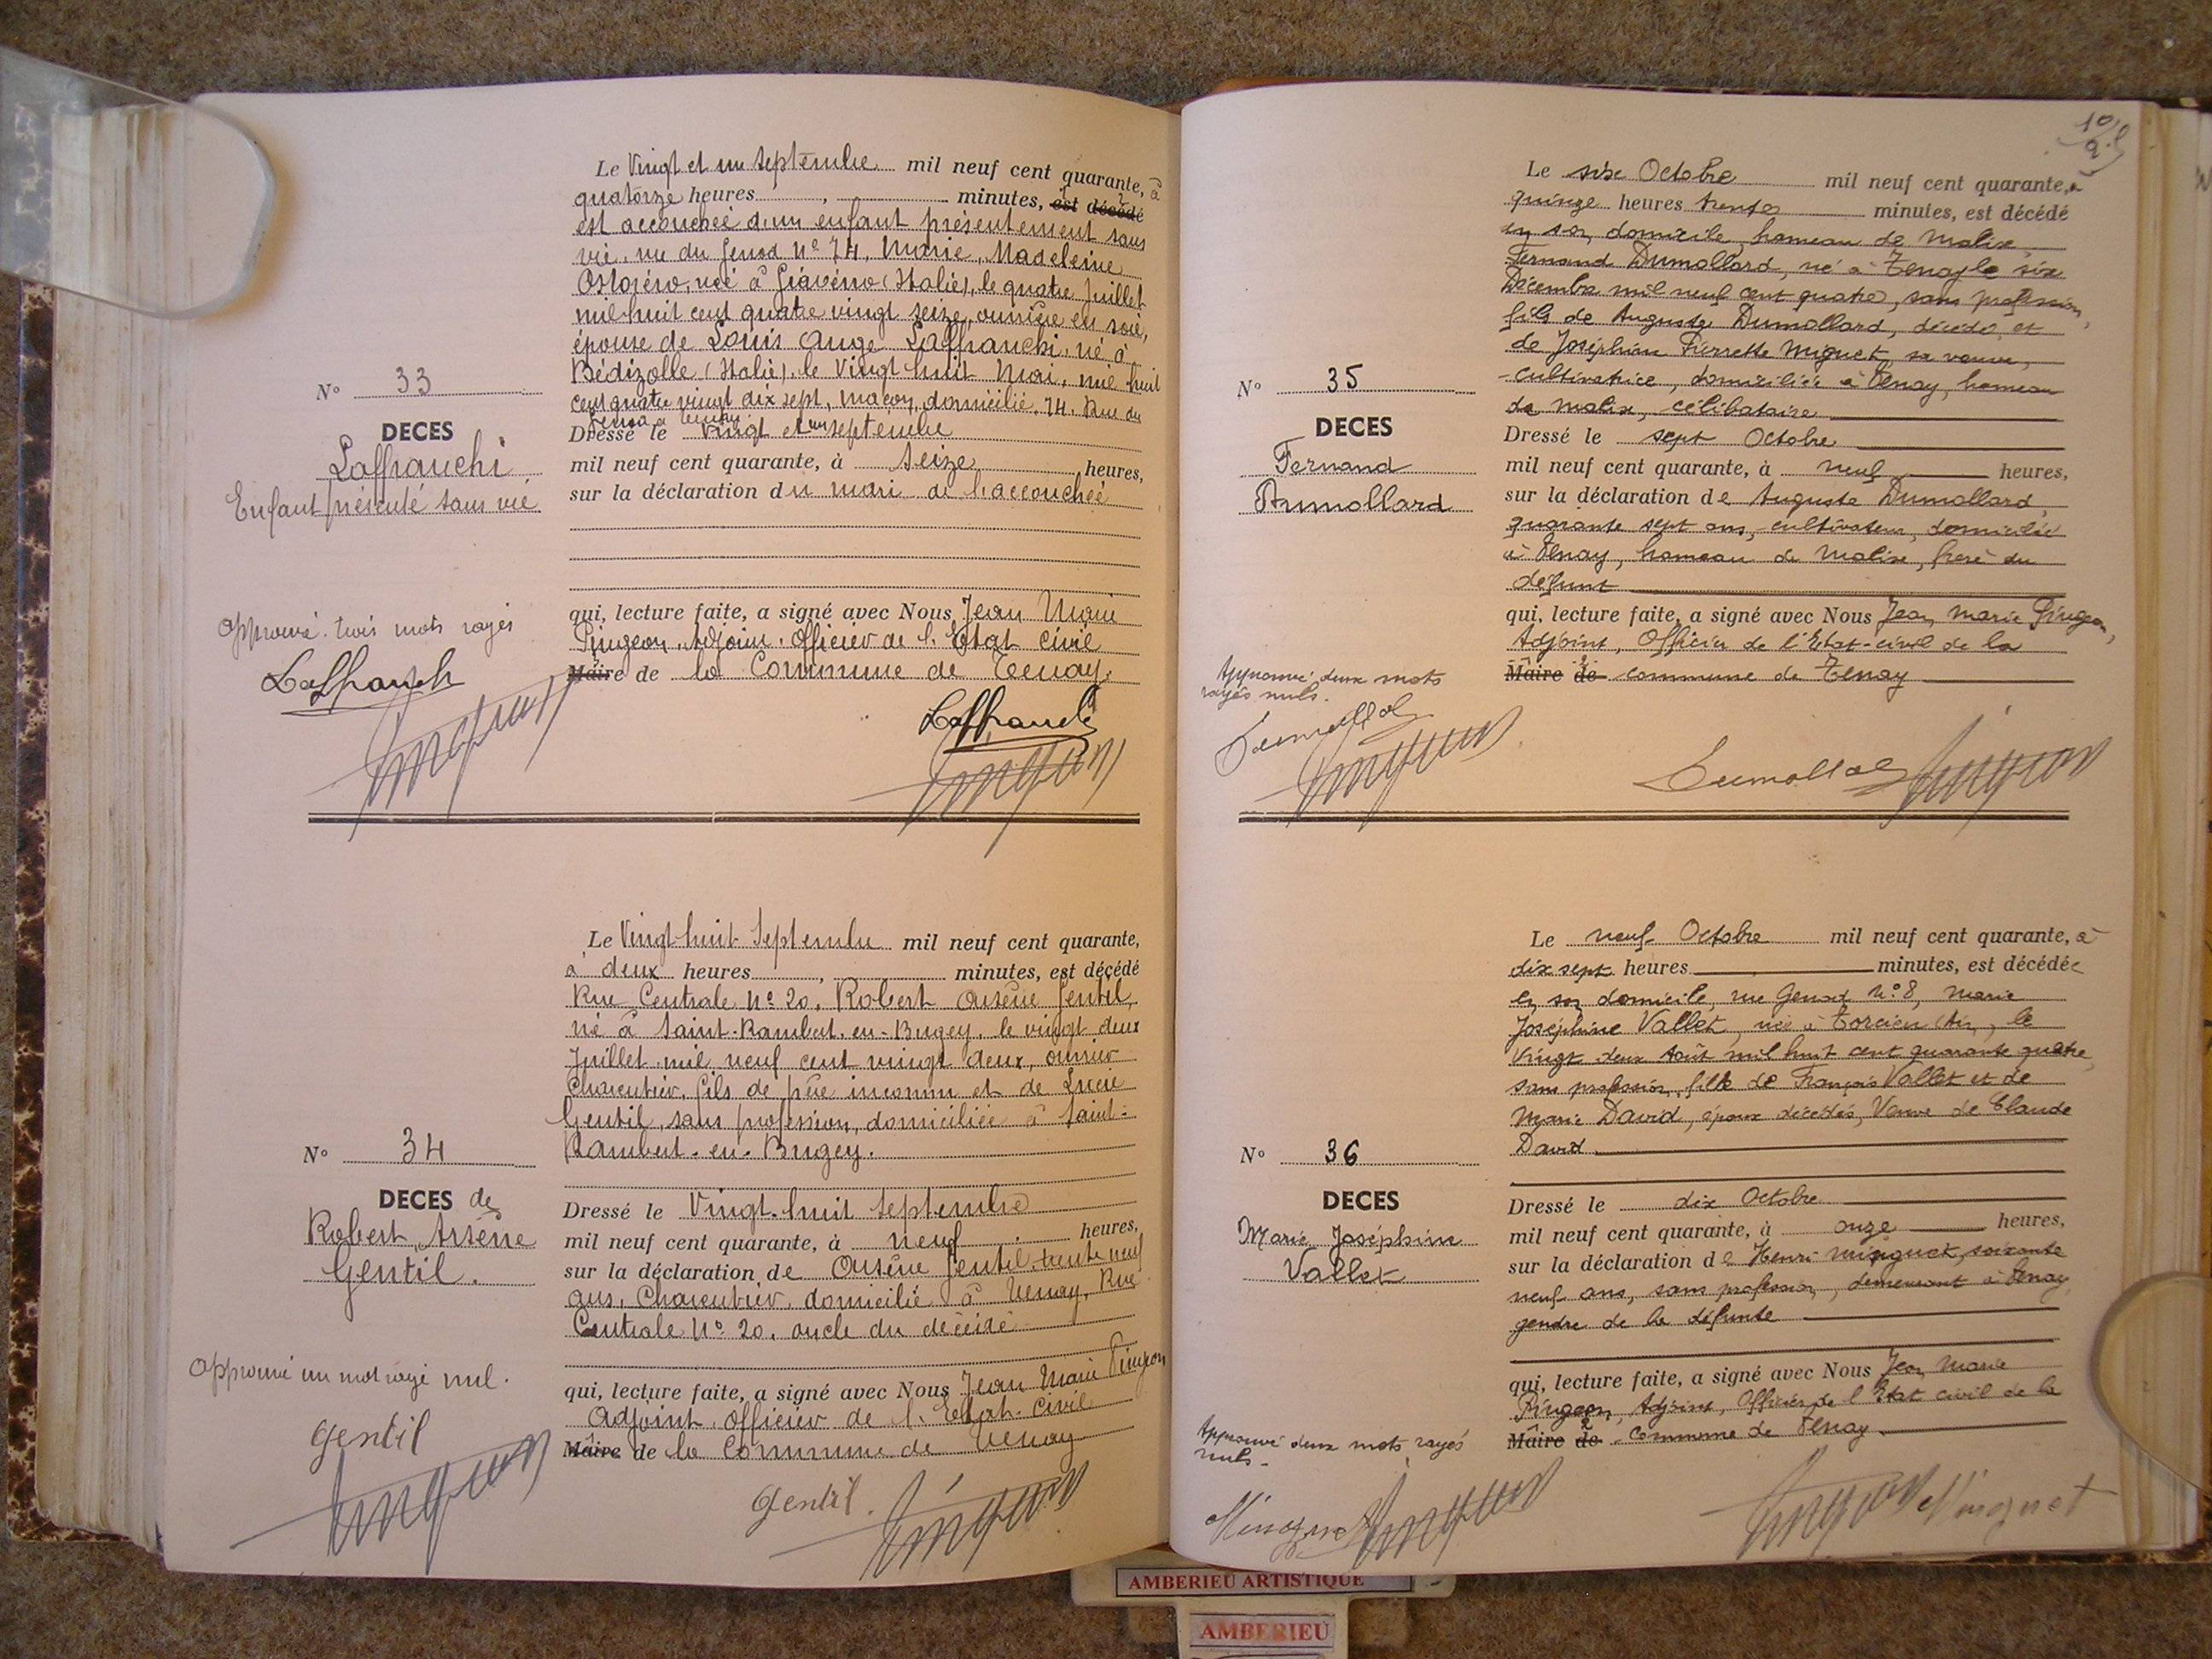 Le Vingt et un septembre mil neuf cent quarante, à
quatorze heures , minutes, est décédé
est accouchée d'un enfant présentement sans
vie, rue du Genod Nº 74, Marie, Madeleine
née à (Italie), le quatre Juillet
mil huit cent quatre vingt seize, ouvrière en soie,
épouse de Louis Ange Laffranchi, né à
Bédizolle (Italie), le Vingt huit Mai, mil huit
cent quatre vingt dix sept, maçon, domicilié, 74, Rue du
Genod à Tenay
Nº 33
DECES
Laffranchi
Enfant présenté sans vie
Dressé le Vingt et un septembre
mil neuf cent quarante, à seize heures,
sur la déclaration du mari de l'accouchée
Approuvé trois mots rayés
qui, lecture faite, a signé avec Nous Jean Marie
Pingeon, Adjoint, Officier de l'Etat civil
Maire de la Commune de Tenay.
Laffranchi
Laffranchi
Le Vingt huit Septembre mil neuf cent quarante,
à deux heures , minutes, est décédé
Rue Centrale Nº 20, Robert Arsène Gentil,
né à Saint-Rambert-en-Bugey, le vingt deux
Juillet mil neuf cent vingt deux, ouvrier
Charcutier, fils de père inconnu et de Lucie
Gentil, sans profession, domiciliée à Saint-
Rambert-en-Bugey.
Nº 34
DECES de
Robert, Arsène
Gentil.
Dressé le Vingt-huit Septembre
mil neuf cent quarante, à neuf heures,
sur la déclaration de Arsène Gentil, trente neuf
ans, Charcutier, domicilié à Tenay, Rue
Centrale Nº 20, oncle du décédé
Approuvé un mot rayé nul.
qui, lecture faite, a signé avec Nous Jean Marie Pingeon
Adjoint Officier de l'Etat-Civil
Maire de la Commune de Tenay
Gentil
Gentil.
Le six Octobre mil neuf cent quarante, à
quinze heures trente minutes, est décédé
en son domicile, hameau de Malix,
Fernand Dumollard, né à Tenay le six
Décembre mil neuf cent quatre, sans profession,
fils de Auguste Dumollard, décédé, et
de Joséphine Pierrette Miguet, sa veuve,
cultivatrice, domiciliée à Tenay, hameau
de Malix, célibataire
Nº 35
DECES
Fernand
Dumollard
Dressé le sept Octobre
mil neuf cent quarante, à neuf heures,
sur la déclaration de Auguste Dumollard,
quarante sept ans, cultivateur, domicilié
à Tenay, hameau de Malix, frère du
défunt
qui, lecture faite, a signé avec Nous Jean Marie Pingeon,
Adjoint, Officier de l'Etat-civil de la
Maire de commune de Tenay
Approuvé deux mots
rayés nuls.
Dumollard
Dumollard
Le neuf Octobre mil neuf cent quarante, à
dix sept heures minutes, est décédée
en son domicile, rue Genod Nº 8, Marie
Joséphine Vallet, née à Torcieu (Ain), le
vingt deux Août mil huit cent quarante quatre,
sans profession, fille de François Vallet et de
Marie David, époux décédés, Veuve de Claude
David
Nº 36
DECES
Marie Joséphine
Vallet
Dressé le dix Octobre
mil neuf cent quarante, à onze heures,
sur la déclaration de Henri Minguet, soixante
neuf ans, sans profession, demeurant à Tenay,
gendre de la défunte
qui, lecture faite, a signé avec Nous Jean Marie
Pingeon, Adjoint, Officier de l'Etat civil de la
Maire de commune de Tenay.
Approuvé deux mots rayés
nuls.
Minguet
Minguet
AMBERIEU ARTISTIQUE
AMBERIEU